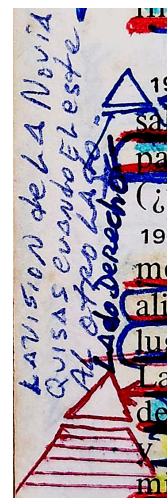 LA VISION de LA NOVIA
QUISAS CUANDO EL este
AL OTRO LADO.
LADO DERECHO
19
sa
pa
(¿
19
me
ali
lug
La
de
y
mi